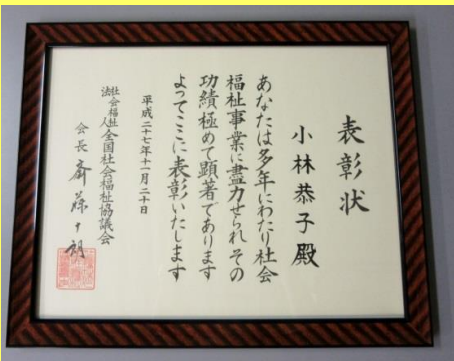 表彰状
小林恭子殿
あなたは多年にわたり社会
福祉事業に盡力せられその
功績極めて顕著であります
よってここに表彰いたします
平成二十七年十一月二十日
社会福祉
法人
全国社会福祉協議会
会長 斎藤十朗